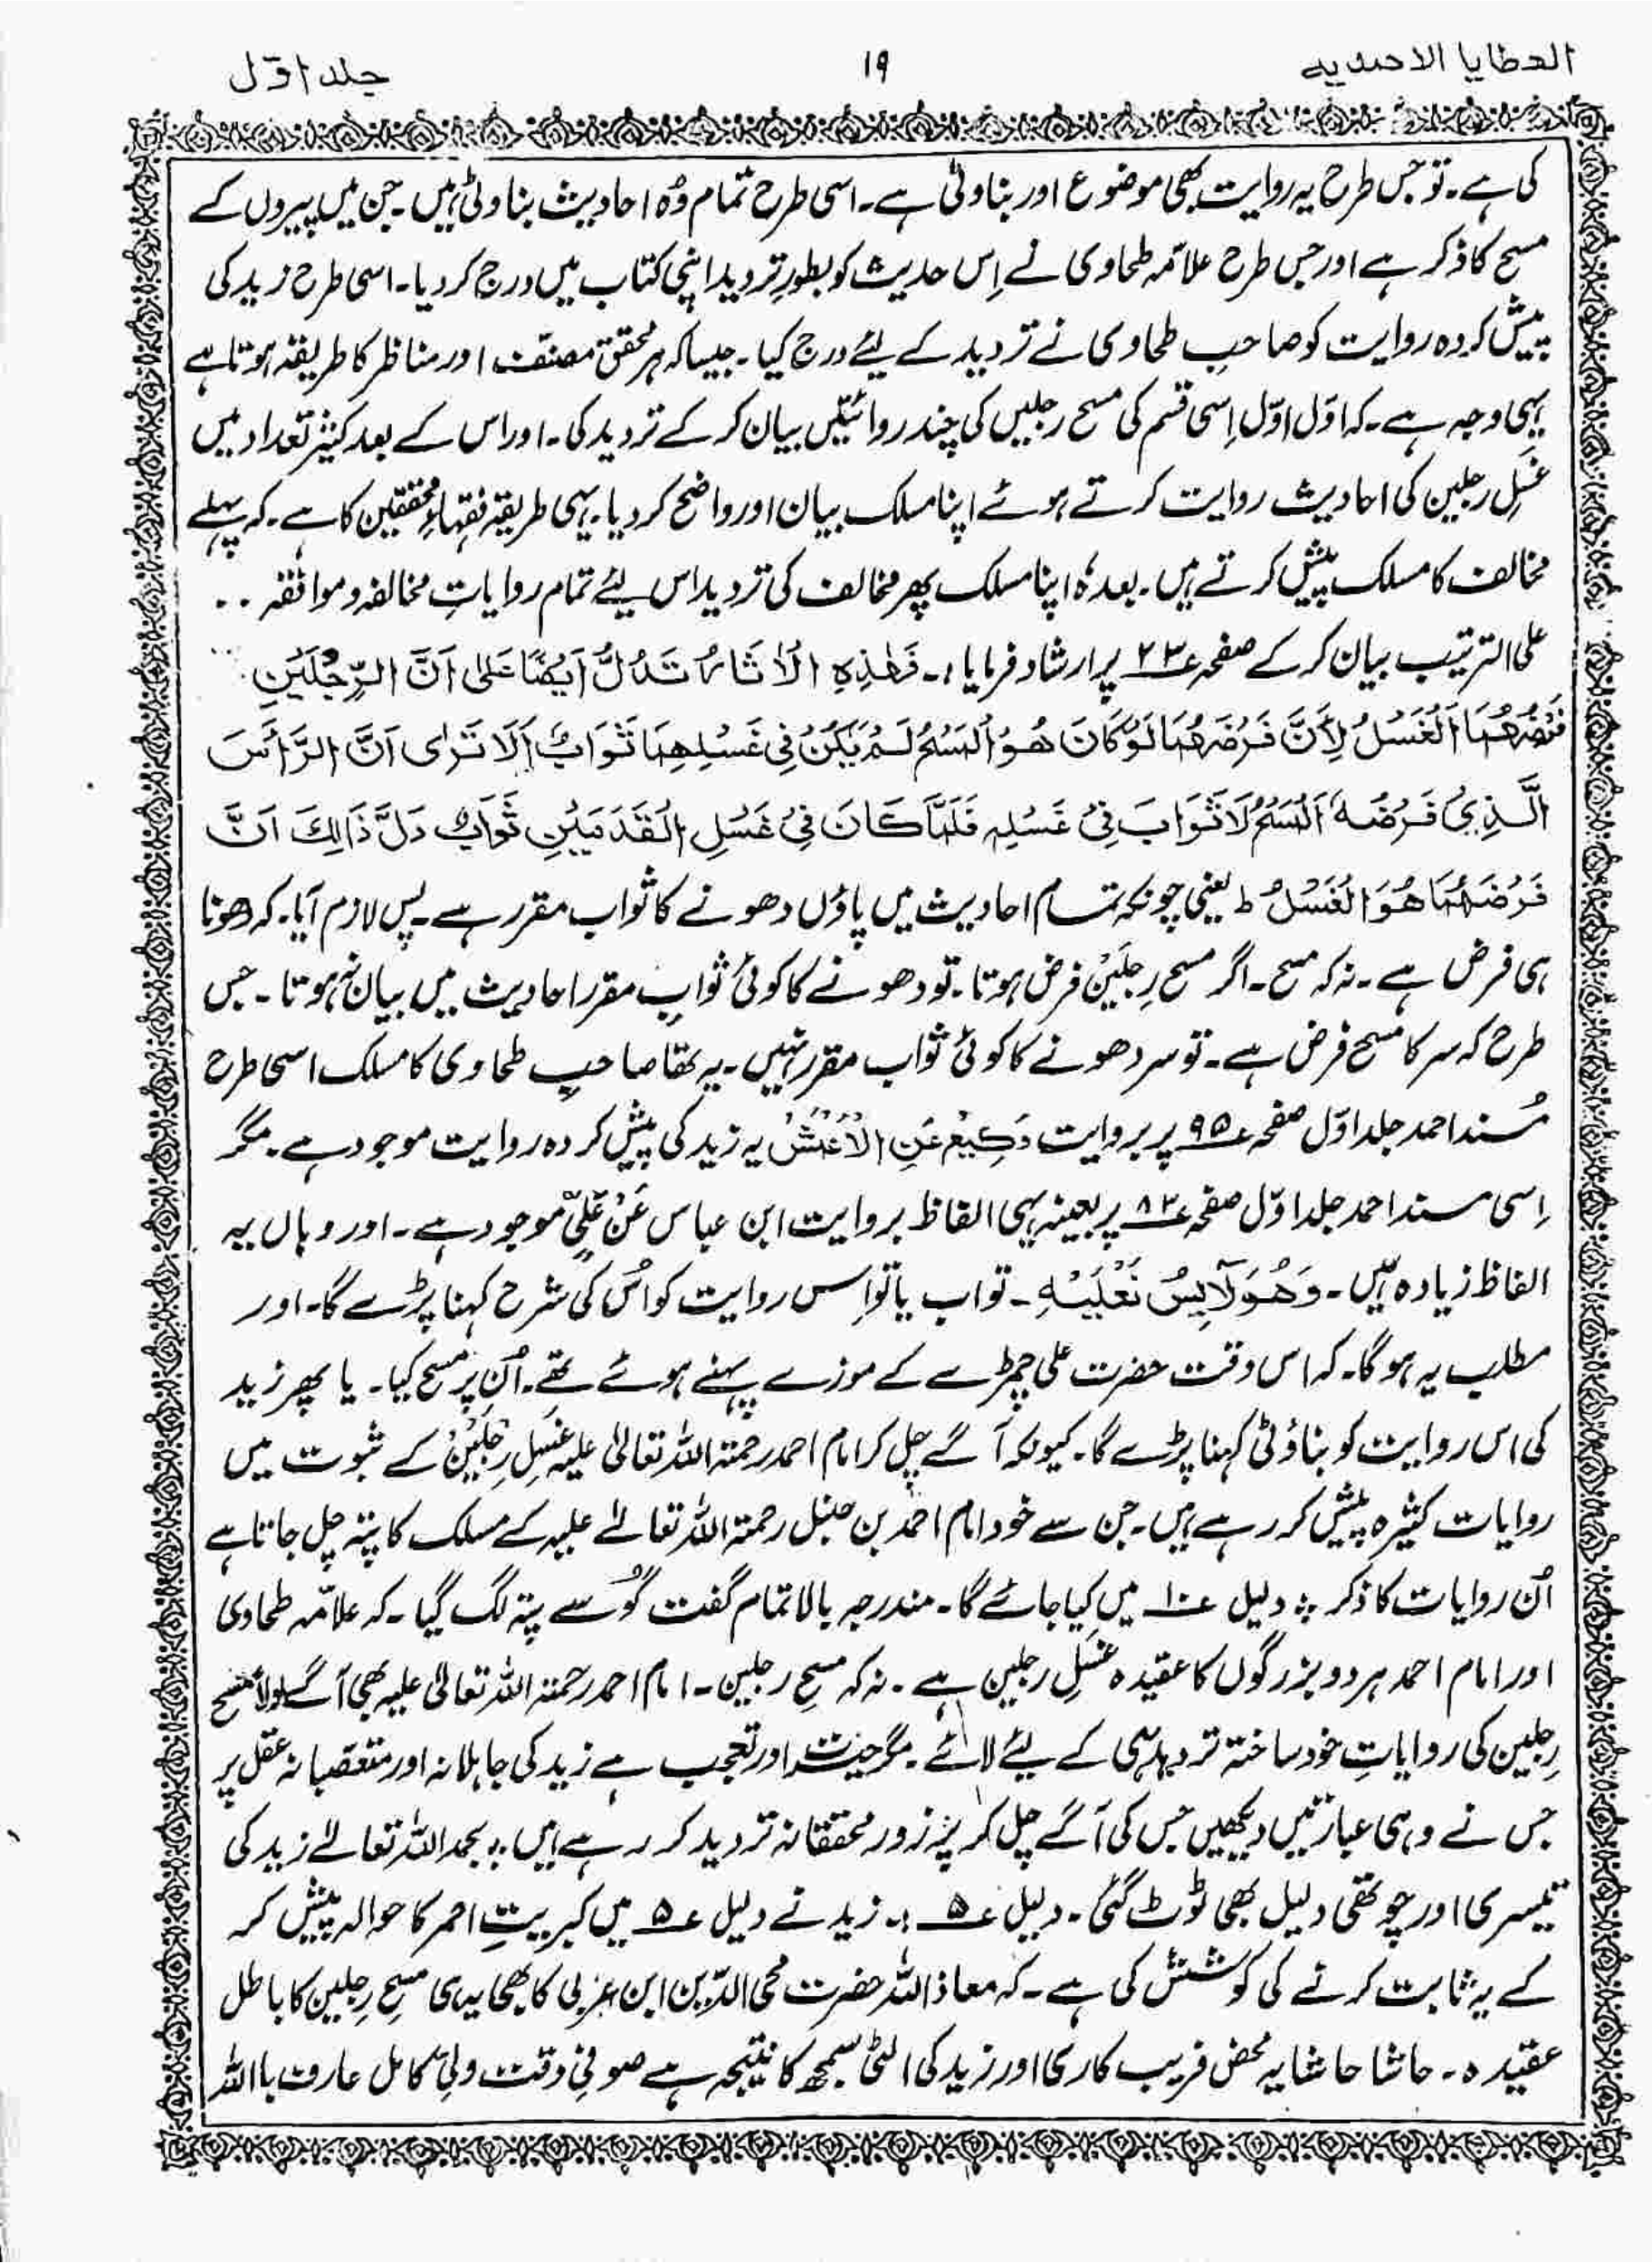 العطایا الاحمدیہ ۱۹ جلد اوّل
کی ہے۔ تو جس طرح یہ روایت بھی موضوع اور بناوٹی ہے۔ اسی طرح تمام وُہ احادیث بناوٹی ہیں۔ جن میں پیروں کے
مسح کا ذکر ہے اور جس طرح علامّہ طحاوی نے اِس حدیث کو بطورِ تردید اپنی کتاب میں درج کر دیا۔ اسی طرح زید کی
پیش کردہ روایت کو صاحبِ طحاوی نے تردید کے لیئے درج کیا۔ جیسا کہ ہر محقق مصنّف اور مناظر کا طریقہ ہوتا ہے
یہی وجہ ہے۔ کہ اوّل اوّل اِسی قسم کی مسح رجلیں کی چند روائتیں بیان کر کے تردید کی۔ اور اس کے بعد کثیر تعداد میں
غَسلِ رجلین کی احادیث روایت کرتے ہوئے اپنا مسلک بیان اور واضح کر دیا۔ یہی طریقہ فقہاءِ محققین کا ہے۔ کہ پہلے
مخالف کا مسلک پیش کرتے ہیں۔ بعدہٗ اپنا مسلک پھر مخالف کی تردید اس لیئے تمام روایاتِ مخالفہ و موافقہ ۔ ۔
علی الترتیب بیان کر کے صفحہ ع۲۳ پر ارشاد فرمایا :۔ فَھٰذِہِ الْاٰثَارُ تَدُلُّ اَیْضًا عَلٰی اَنَّ الرِّجْلَیْنِ
فَرْضُھُمَا الْغَسْلُ لِاَنَّ فَرْضَھُمَا لَوْ کَانَ ھُوَ الْمَسْحُ لَمْ یَکُنْ فِیْ غَسْلِھِمَا ثَوَابٌ اَلَا تَرٰی اَنَّ الرَّاْسَ
الَّذِیْ فَرْضُہٗ الْمَسْحُ لَا ثَوَابَ فِیْ غَسْلِہٖ فَلَمَّا کَانَ فِیْ غَسْلِ الْقَدَمَیْنِ ثَوَابٌ دَلَّ ذَالِکَ اَنَّ
فَرْضَھُمَا ھُوَ الْغَسْلُ ط یعنی چونکہ تمام احادیث میں پاؤں دھونے کا ثواب مقرر ہے۔ پس لازم آیا۔ کہ دھونا
ہی فرض ہے۔ نہ کہ مسح۔ اگر مسح رِجلَیْن فرض ہوتا۔ تو دھونے کا کوئی ثواب مقرر احادیث میں بیان نہ ہوتا۔ جس
طرح کہ سر کا مسح فرض ہے۔ تو سر دھونے کا کوئی ثواب مقرر نہیں۔ یہ تھا صاحبِ طحاوی کا مسلک اسی طرح
مُسند احمد جلد اوّل صفحہ ع۹۵ پر بروایت وَکِیْعْ عَنِ الْاَعْمَشْ یہ زید کی پیش کردہ روایت موجود ہے۔ مگر
اِسی مسند احمد جلد اوّل صفحہ ع۸۳ پر بعینہ یہی الفاظ بروایت ابن عباس عَنْ عَلِیٍّ موجود ہے۔ اور وہاں یہ
الفاظ زیادہ ہیں۔ وَھُوَ لَابِسُ نَعْلَیْہِ۔ تو اب یا تو اِس روایت کو اُس کی شرح کہنا پڑے گا۔ اور
مطلب یہ ہو گا۔ کہ اس وقت حضرت علی چمڑے کے موزے پہنے ہوئے تھے۔ اُن پر مسح کیا۔ یا پھر زید
کی اس روایت کو بناؤٹی کہنا پڑے گا۔ کیونکہ آگے چل کر امام احمد رحمۃ اللہ تعالیٰ علیہ غَسلِ رِجلَیْن کے ثبوت میں
روایات کثیرہ پیش کر رہے ہیں۔ جن سے خود امام احمد بن حنبل رحمۃ اللہ تعالےٰ علیہ کے مسلک کا پتہ چل جاتا ہے
اُن روایات کا ذکر دلیل ع۱۰ میں کیا جائے گا۔ مندرجہ بالا تمام گفت گُو سے پتہ لگ گیا۔ کہ علامّہ طحاوی
اور امام احمد ہر دو بزرگوں کا عقیدہ غَسلِ رجلین ہے۔ نہ کہ مسحِ رجلین۔ امام احمد رحمۃ اللہ تعالیٰ علیہ بھی آگے اولاً مسح
رِجلین کی روایاتِ خود ساختہ تردید ہی کے لیئے لائے۔ مگر حیرت اور تعجب ہے زید کی جاہلانہ اور متعصّبانہ عقل پر
جس نے وہی عبارتیں دیکھیں جس کی آگے چل کر پُر زور محققانہ تردید کر رہے ہیں۔ بحمد اللہ تعالےٰ زید کی
تیسری اور چوتھی دلیل بھی ٹوٹ گئی۔ دلیل ع۵ :۔ زید نے دلیل ع۵ میں کبریتِ احمر کا حوالہ پیش کر
کے یہ ثابت کرنے کی کوشش کی ہے۔ کہ معاذ اللہ حضرت محی الدّین ابن عربی کا بھی یہی مسحِ رِجلین کا باطل
عقیدہ۔ حاشا حاشا یہ محض فریب کاری اور زید کی الٹی سمجھ کا نتیجہ ہے صوفیِ وقت ولیِ کامل عارف باللہ